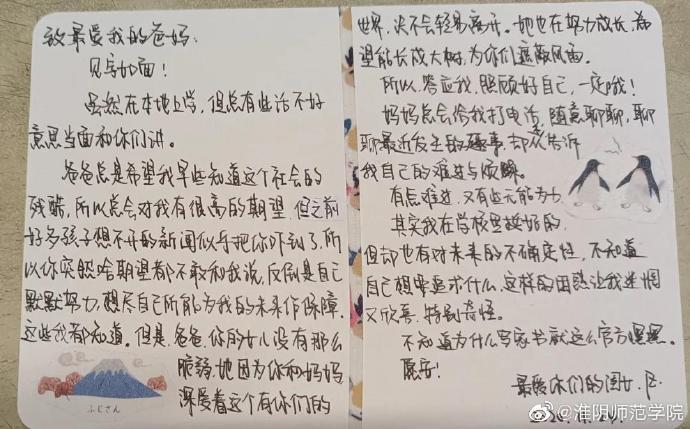 致最爱我的爸妈:
见字如面!
虽然在本地上学,但总有些话不好
意思当面和你们讲。
爸爸总是希望我早些知道这个社会的
残酷,所以总会对我有很高的期望,但之前
好多孩子想不开的新闻似乎把你吓到了,所
以你突然啥期望都不敢和我说,反倒是自己
默默努力,想尽自己所能为我的未来作保障,
这些我都知道。但是,爸爸,你的女儿没有那么
脆弱,她因为你和妈妈
深爱着这个有你们的
ふじさん
世界,决不会轻易离开。她也在努力成长,希
望能长成大树,为你们遮蔽风雨。
所以,答应我,照顾好自己,一定哦!
妈妈总会给我打电话,随意聊聊,聊
聊最近发生的趣事,却不告诉
我自己的难过与烦恼。
有点难过,又有些无能为力
其实我在学校里挺好的,
但却也有对未来的不确定性,不知道
自己想要追求什么,这样的困惑让我迷惘
又欣喜,特别奇怪。
不知道为什么写家书就这么官方嘿嘿。
愿安!
最爱你们的闺女
@淮阴师范学院